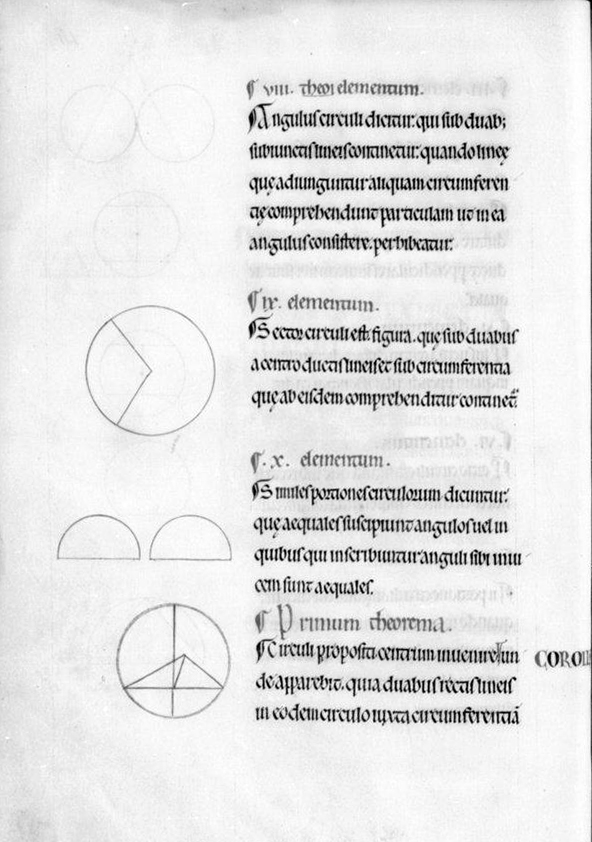 ¶ VIII. theor elementum.
¶ Angulus circuli dicitur: qui sub duab;
subiunctis lineis continetur: quando lineę
quę adiunguntur aliquam circumferen
tię comprehendunt particulam ut in ea
angulus consistere perhibeatur.
¶ IX. elementum.
¶ Sector circuli est figura. quę sub duabus
a centro ductis lineis et sub circumferentia
quę ab eisdem comprehenditur continet.
¶ .X. elementum.
¶ Similes portiones circulorum dicuntur.
quę aequales suscipiunt angulos uel in
quibus qui inscribuntur anguli sibi inui
cem sunt aequales.
¶ Primum theorema.
¶ Circuli propositi centrum inuenire. Un COROLL
de apparebit. quia duabus rectis lineis
in eodem circulo iuxta circumferentiā